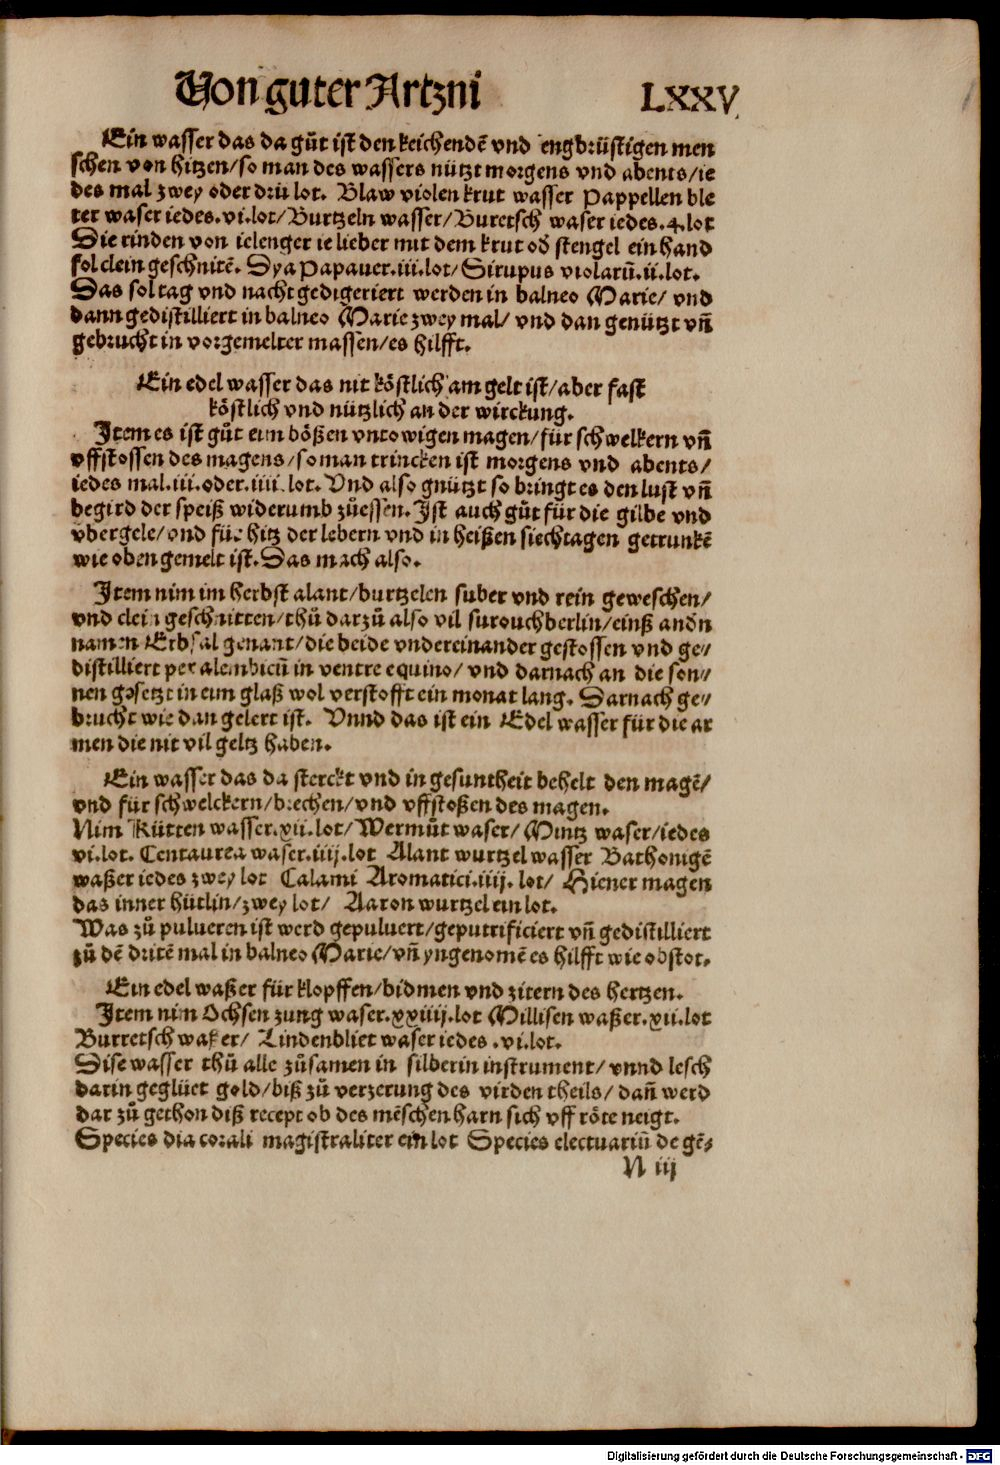 Von guter Artzni LXXV
Ein wasser das da gůt ist den keichendē vnd engbrüstigen men
schen von hitzen/so man des wassers nützt morgens vnd abents/ie
des mal zwey oder drü lot. Blaw violen krut wasser Pappellen ble
ter waser iedes.vi.lot/Burtzeln wasser/Buretsch waser iedes.4.lot
Die rinden von ielenger ie lieber mit dem krut od stengel ein hand
fol clein geschnitē. Dya Papauer.iii.lot/Sirupus violarū.ii.lot.
Das sol tag vnd nacht gedigeriert werden in balneo Marie/ vnd
dann gedistilliert in balneo Marie zwey mal/ vnd dan genützt vñ
gebrucht in vorgemelter massen/es hilfft.
Ein edel wasser das nit köstlich am gelt ist/aber fast
köstlich vnd nützlich an der wirckung.
Item es ist gůt eim bößen vntowigen magen/für schwelkern vñ
vffstossen des magens/so man trincken ist morgens vnd abents/
iedes mal.iii.oder.iiii.lot. Vnd also gnützt so bringt es den lust vñ
begird der speiß widerumb zůessen. Ist auch gůt für die gilbe vnd
vbergele/vnd für hitz der lebern vnd in heißen siechtagen getrunkē
wie oben gemelt ist. Das mach also.
Item nim im herbst alant/burtzelen suber vnd rein geweschen/
vnd clein geschnitten/thů darzů also vil surouchberlin/einß andn
namen Erbsal genant/die beide vndereinander gestossen vnd ge//
distilliert per alembicū in ventre equino/ vnd darnach an die son//
nen gesetzt in eim glaß wol verstofft ein monat lang. Darnach ge//
brucht wie dan gelert ist. Vnnd das ist ein Edel wasser für die ar
men die nit vil geltz haben.
Ein wasser das da sterckt vnd in gesuntheit behelt den magē/
vnd für schwelckern/brechen/vnd vffstoßen des magen.
Nim Kütten wasser.xii.lot/Wermůt waser/ Mintz waser/iedes
vi.lot. Centaurea waser.iiij.lot Alant wurtzel wasser Bathonigē
waßer iedes zwey lot Calami Aromatici.iiij. lot/ Hiener magen
das inner hütlin/zwey lot/ Aaron wurtzel ein lot.
Was zů pulueren ist werd gepuluert/geputrificiert vñ gedistilliert
zů dē dritē mal in balneo Marie/vñ yngenomē es hilfft wie obstot.
Ein edel waßer für klopffen/bidmen vnd zitern des hertzen.
Item nim Ochsen zung waser.xxiiij.lot Millisen waßer.xii.lot
Burretsch waßer/ Lindenbliet waser iedes .vi.lot.
Dise wasser thů alle zůsamen in silberin instrument/ vnnd lesch
darin geglüet gold/biß zů verzerung des virden theils/ dañ werd
dar zů gethon diß recept ob des mēschen harn sich vff röte neigt.
Species dia corali magistraliter ein lot Species electuariū de gē//
N iij
Digitalisierung gefördert durch die Deutsche Forschungsgemeinschaft - DFG